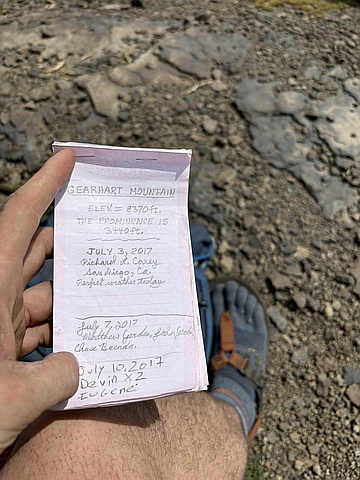 GEARHART MOUNTAIN
ELEV = 8370ft.
THE PROMINENCE IS
3440ft.
JULY 3, 2017
Richard L. Carey
San Diego, Ca.
Perfect weather today.
July 7, 2017
Matthew
Chase
July 10, 2017
Devin x2
Eugene